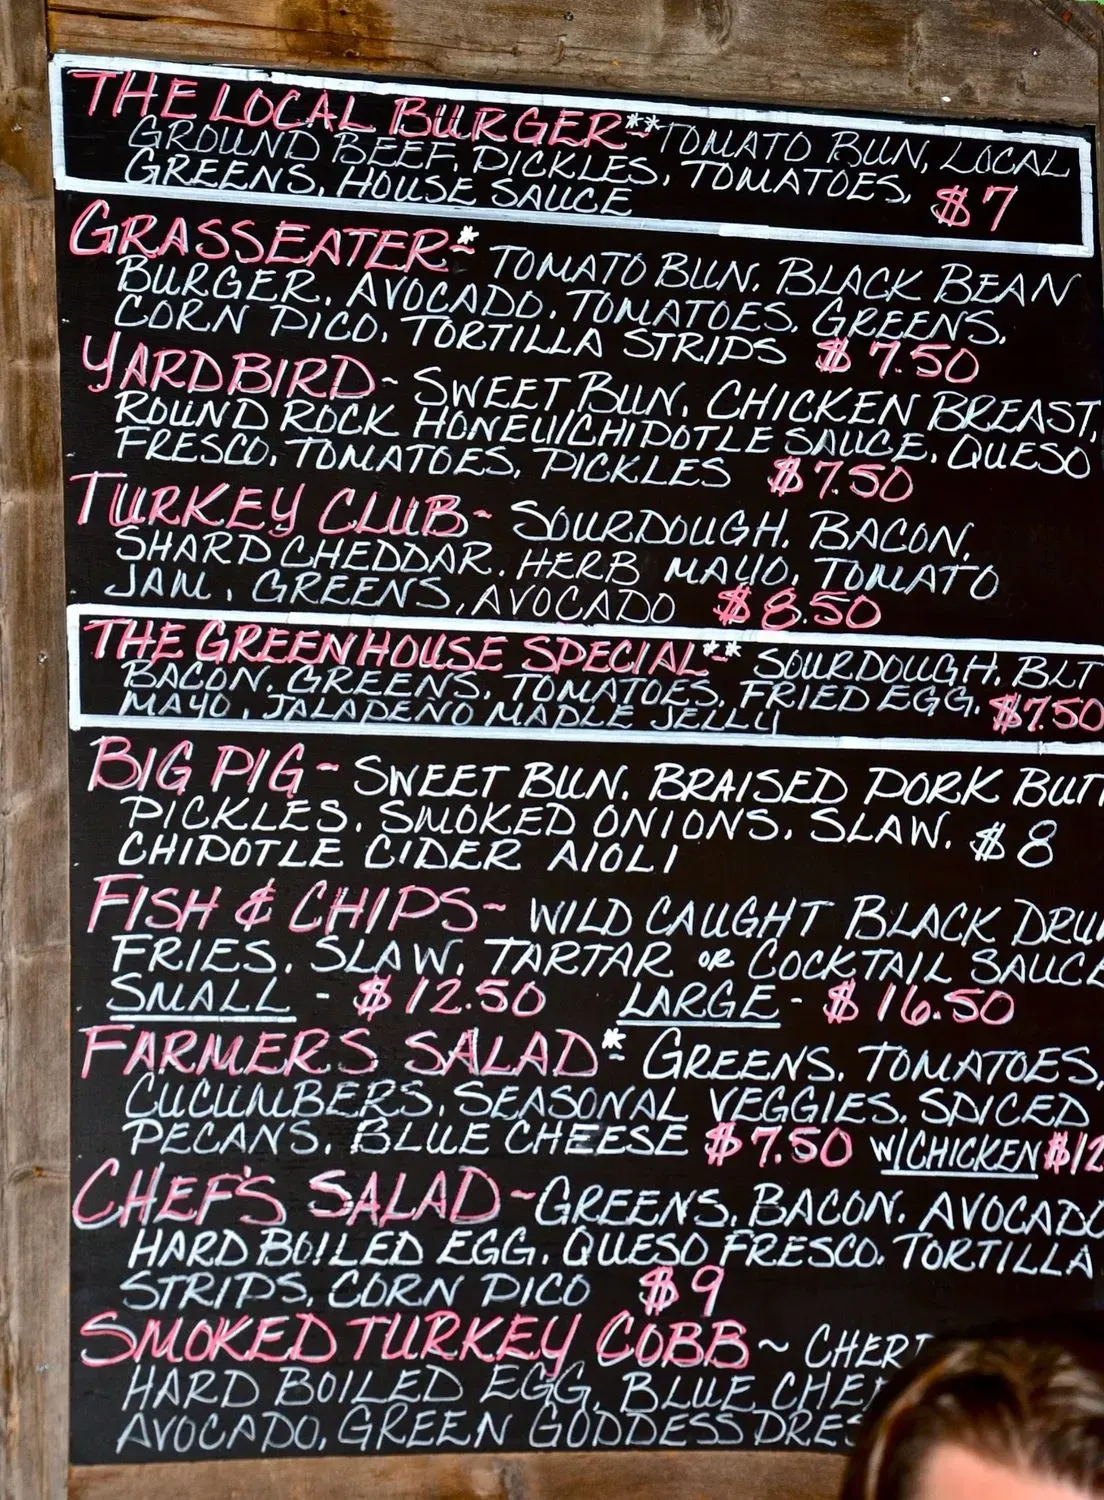 THE LOCAL BURGER**~ TOMATO BUN, LOCAL
GROUND BEEF, PICKLES, TOMATOES,
GREENS, HOUSE SAUCE $7
GRASSEATER*~ TOMATO BUN, BLACK BEAN
BURGER, AVOCADO, TOMATOES, GREENS,
CORN PICO, TORTILLA STRIPS $7.50
YARDBIRD~ SWEET BUN, CHICKEN BREAST,
ROUND ROCK HONEY/CHIPOTLE SAUCE, QUESO
FRESCO, TOMATOES, PICKLES $7.50
TURKEY CLUB~ SOURDOUGH, BACON,
SHARP CHEDDAR, HERB MAYO, TOMATO
JAM, GREENS, AVOCADO $8.50
THE GREENHOUSE SPECIAL**~ SOURDOUGH, BLT
BACON, GREENS, TOMATOES, FRIED EGG,
MAYO, JALAPENO MAPLE JELLY $7.50
BIG PIG~ SWEET BUN, BRAISED PORK BUTT
PICKLES, SMOKED ONIONS, SLAW,
CHIPOTLE CIDER AIOLI $8
FISH & CHIPS~ WILD CAUGHT BLACK DRU
FRIES, SLAW, TARTAR OR COCKTAIL SAUCE
SMALL - $12.50 LARGE - $16.50
FARMERS SALAD*~ GREENS, TOMATOES,
CUCUMBERS, SEASONAL VEGGIES, SPICED
PECANS, BLUE CHEESE $7.50 W/CHICKEN $12
CHEF'S SALAD~ GREENS, BACON, AVOCADO
HARD BOILED EGG, QUESO FRESCO, TORTILLA
STRIPS, CORN PICO $9
SMOKED TURKEY COBB~
HARD BOILED EGG, BLUE
AVOCADO, GREEN GODDESS